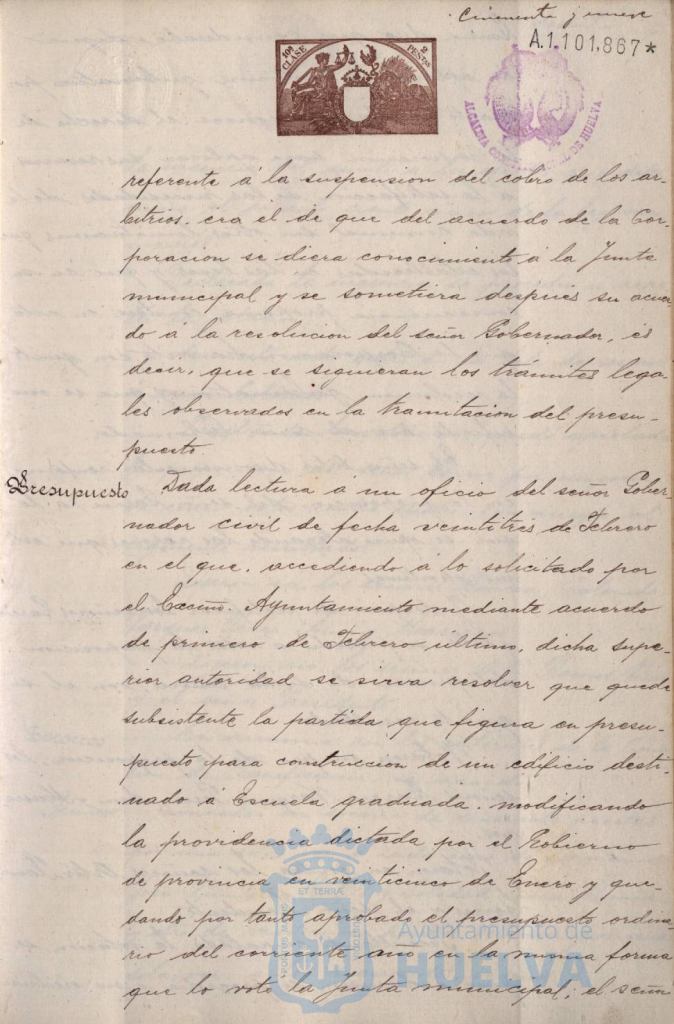 Cincuenta y nueve
A.1.101,867*
10ª CLASE
2 PESETAS
ALCALDIA CONSTITUCIONAL DE HUELVA
referente á la suspension del cobro de los ar-
bitrios. era el de que del acuerdo de la Cor-
poracion se diera conocimiento á la Junta
municipal y se sometiera despues su acuer
do á la resolucion del señor Gobernador, es
decir, que se siguieran los trámites lega-
les observados en la tramitacion del presu-
puesto.
Presupuesto Dada lectura á un oficio del señor Gober-
nador civil de fecha veintitres de Febrero
en el que, accediendo á lo solicitado por
el Excmo. Ayuntamiento mediante acuerdo
de primero de Febrero último, dicha supe-
rior autoridad se sirva resolver que quede
subsistente la partida que figura en presu-
puesto para construccion de un edificio desti-
nado á Escuela graduada. modificando
la providencia dictada por el Gobierno
de provincia en veinticinco de Enero y que-
dando por tanto aprobado el presupuesto ordina-
rio del corriente año en la misma forma
que lo votó la Junta municipal; el señor
ET TERRÆ
Ayuntamiento de
HUELVA